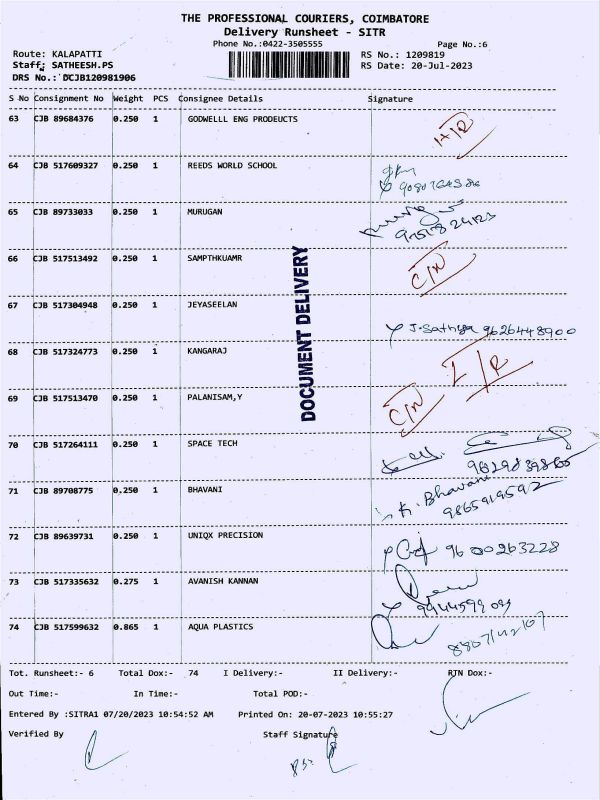 THE PROFESSIONAL COURIERS, COIMBATORE
Delivery Runsheet - SITR
Phone No.:0422-3505555 Page No.:6
Route: KALAPATTI RS No.: 1209819
Staff: SATHEESH.PS RS Date: 20-Jul-2023
DRS No.: DCJB120981906
S No Consignment No Weight PCS Consignee Details Signature
63 CJB 89684376 0.250 1 GODWELLL ENG PRODEUCTS
64 CJB 517609327 0.250 1 REEDS WORLD SCHOOL
65 CJB 89733033 0.250 1 MURUGAN
66 CJB 517513492 0.250 1 SAMPTHKUAMR C/N
67 CJB 517304948 0.250 1 JEYASEELAN
J. Sathya 9626448900
68 CJB 517324773 0.250 1 KANGARAJ I/R
69 CJB 517513470 0.250 1 PALANISAM,Y C/N
DOCUMENT DELIVERY
70 CJB 517264111 0.250 1 SPACE TECH
71 CJB 89708775 0.250 1 BHAVANI K. Bhavani
9865919592
72 CJB 89639731 0.250 1 UNIQX PRECISION
96 00263228
73 CJB 517335632 0.275 1 AVANISH KANNAN
74 CJB 517599632 0.865 1 AQUA PLASTICS
Tot. Runsheet:- 6 Total Dox:- 74 I Delivery:- II Delivery:- RTN Dox:-
Out Time:- In Time:- Total POD:-
Entered By :SITRA1 07/20/2023 10:54:52 AM Printed On: 20-07-2023 10:55:27
Verified By Staff Signature